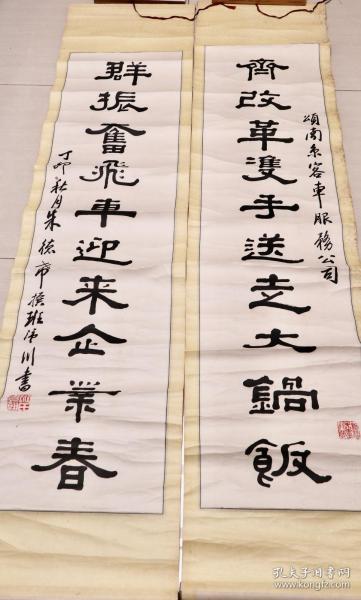 頌南京客車服務公司
齊改革雙手送走大鍋飯
群振奮飛車迎来企業春
丁卯秋月朱德希撰班沛川書
孔夫子旧书网
www.kongfz.com